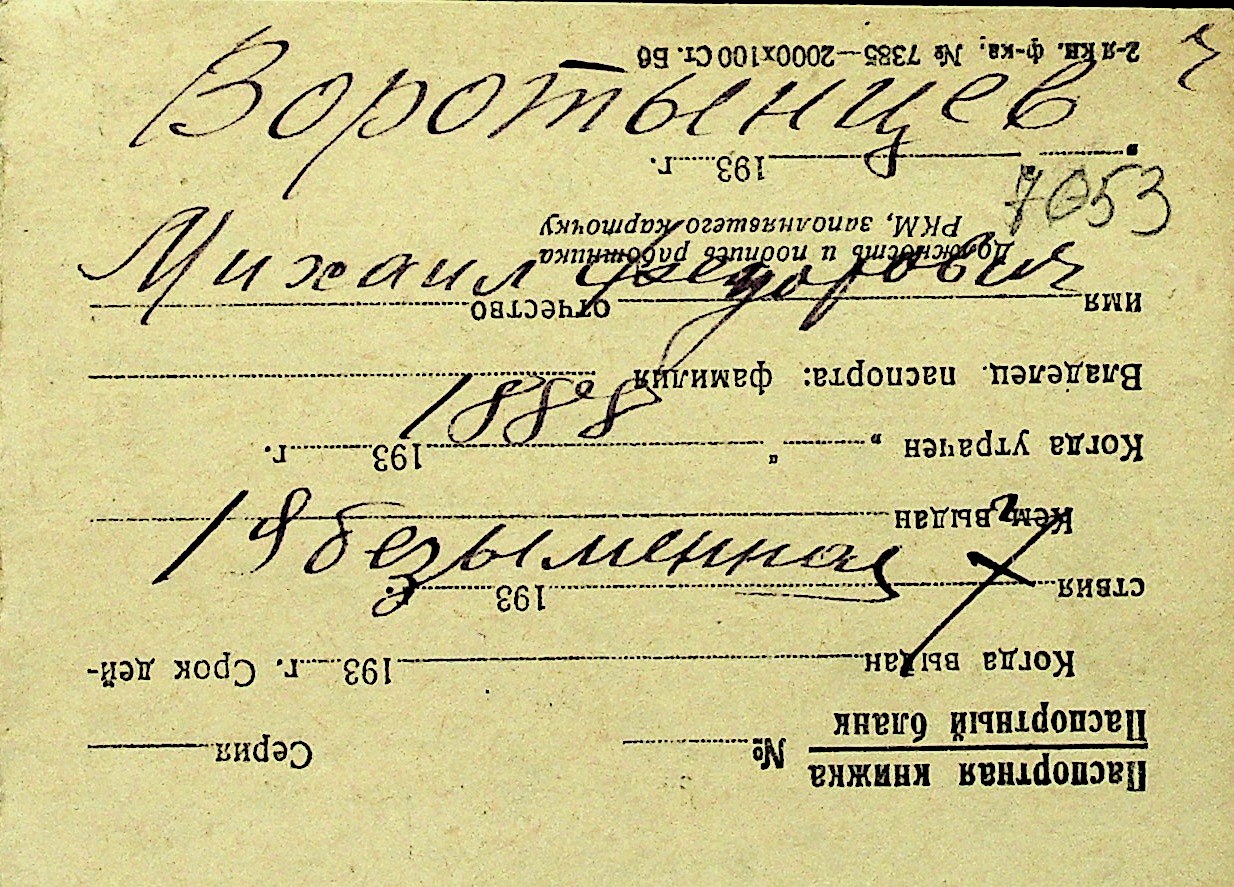 Воротынцев
7053
Михаил Федорович
1888
18 безыменная
Паспортная книжка
Паспортный бланк
№ Серия
Когда выдан 193 г. Срок дей-
ствия 193 г.
Кем выдан
Когда утрачен „ “ 193 г.
Владелец паспорта: фамилия
имя отчество
Должность и подпись работника
РКМ, заполнявшего карточку
„ “ 193 г.
2-я кн. ф-ка. № 7385—2000х100 Ст. Б6